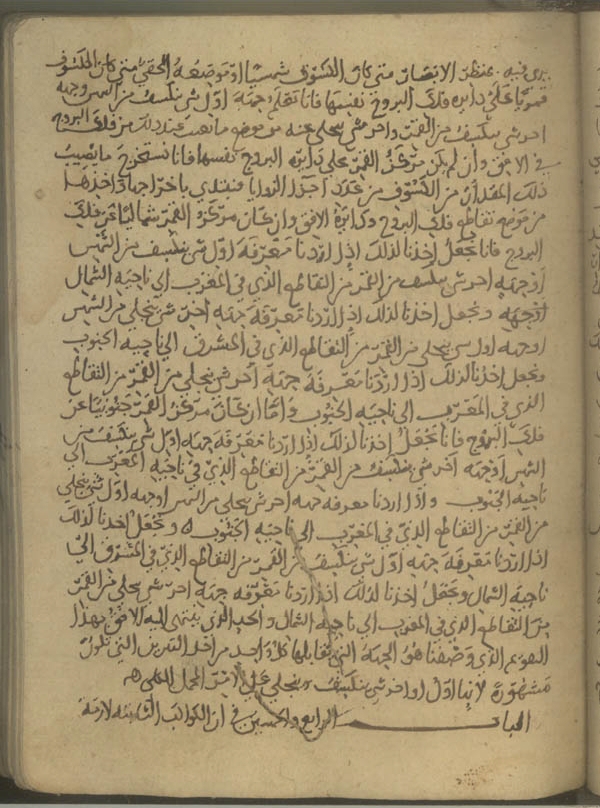 يرى فيه بمنظر الابصار متى كان الكسوف شمسيا او موضعه الحقى متى كان الكسوف
قمريا على دايره فلك البروج نفسها فانا نعلم جهة اول شى ينكسف من الشمس وجهه
اخر شى ينكسف من القمر واخر شى ينجلى عنه من موضع ما نصيب عند ذلك من فلك البروج
فى الافق وان لم يكن مركز القمر على دايره البروج نفسها فانا نستخرج ما يصيب
ذلك المقدار من الكسوف من عدد اجزا الزوايا ونبتدى باخراجها واخذها
من موضع تقاطع فلك البروج ودايرة الافق وان كان مركز القمر شماليا عن فلك
البروج فانا نجعل اخذنا لذلك اذا اردنا معرفة اول شى ينكسف من الشمس
او جهه اخر شى ينكسف من القمر من التقاطع الذى فى المغرب الى ناحية الشمال
او جهه ونجعل اخذنا لذلك اذا اردنا معرفة جهة اخر شى ينجلى من الشمس
او جهه اول شى ينجلى من القمر من التقاطع الذى فى المشرق الى ناحية الجنوب
ونجعل اخذنا لذلك اذا اردنا معرفة جهة اخر شى ينجلى من القمر من التقاطع
الذى فى المغرب الى ناحية الجنوب واما ان كان مركز القمر جنوبيا عن
فلك البروج فانا نجعل اخذنا لذلك اذا اردنا معرفة جهه اول شى ينكسف من
الشمس او جهه اخر شى ينكسف من القمر من التقاطع الذى فى ناحية المغرب الى
ناحية الجنوب واذا اردنا معرفه جهه اخر شى ينجلى من الشمس او جهه اول شى ينجلى
من القمر من التقاطع الذى فى المغرب الى ناحية الجنوب ونجعل اخذنا لذلك
اذا اردنا معرفة جهة اول شى ينكسف من القمر من التقاطع الذى فى المشرق الى
ناحية الشمال ونجعل اخذنا لذلك اذا اردنا معرفه جهة اخر شى ينجلى من القمر
من التقاطع الذى فى المغرب الى ناحية الشمال والحد الذى ينتهى اليه الافق بهذا
التقويم الذى وصفنا هو الجهة التى تقابلها كل واحد من اقدار النيرين التى تكون
مشهورة لانها اول او اخر شى ينكسف وينجلى
الباب الرابع والخمسين فى ان الكواكب الثابته لازمة